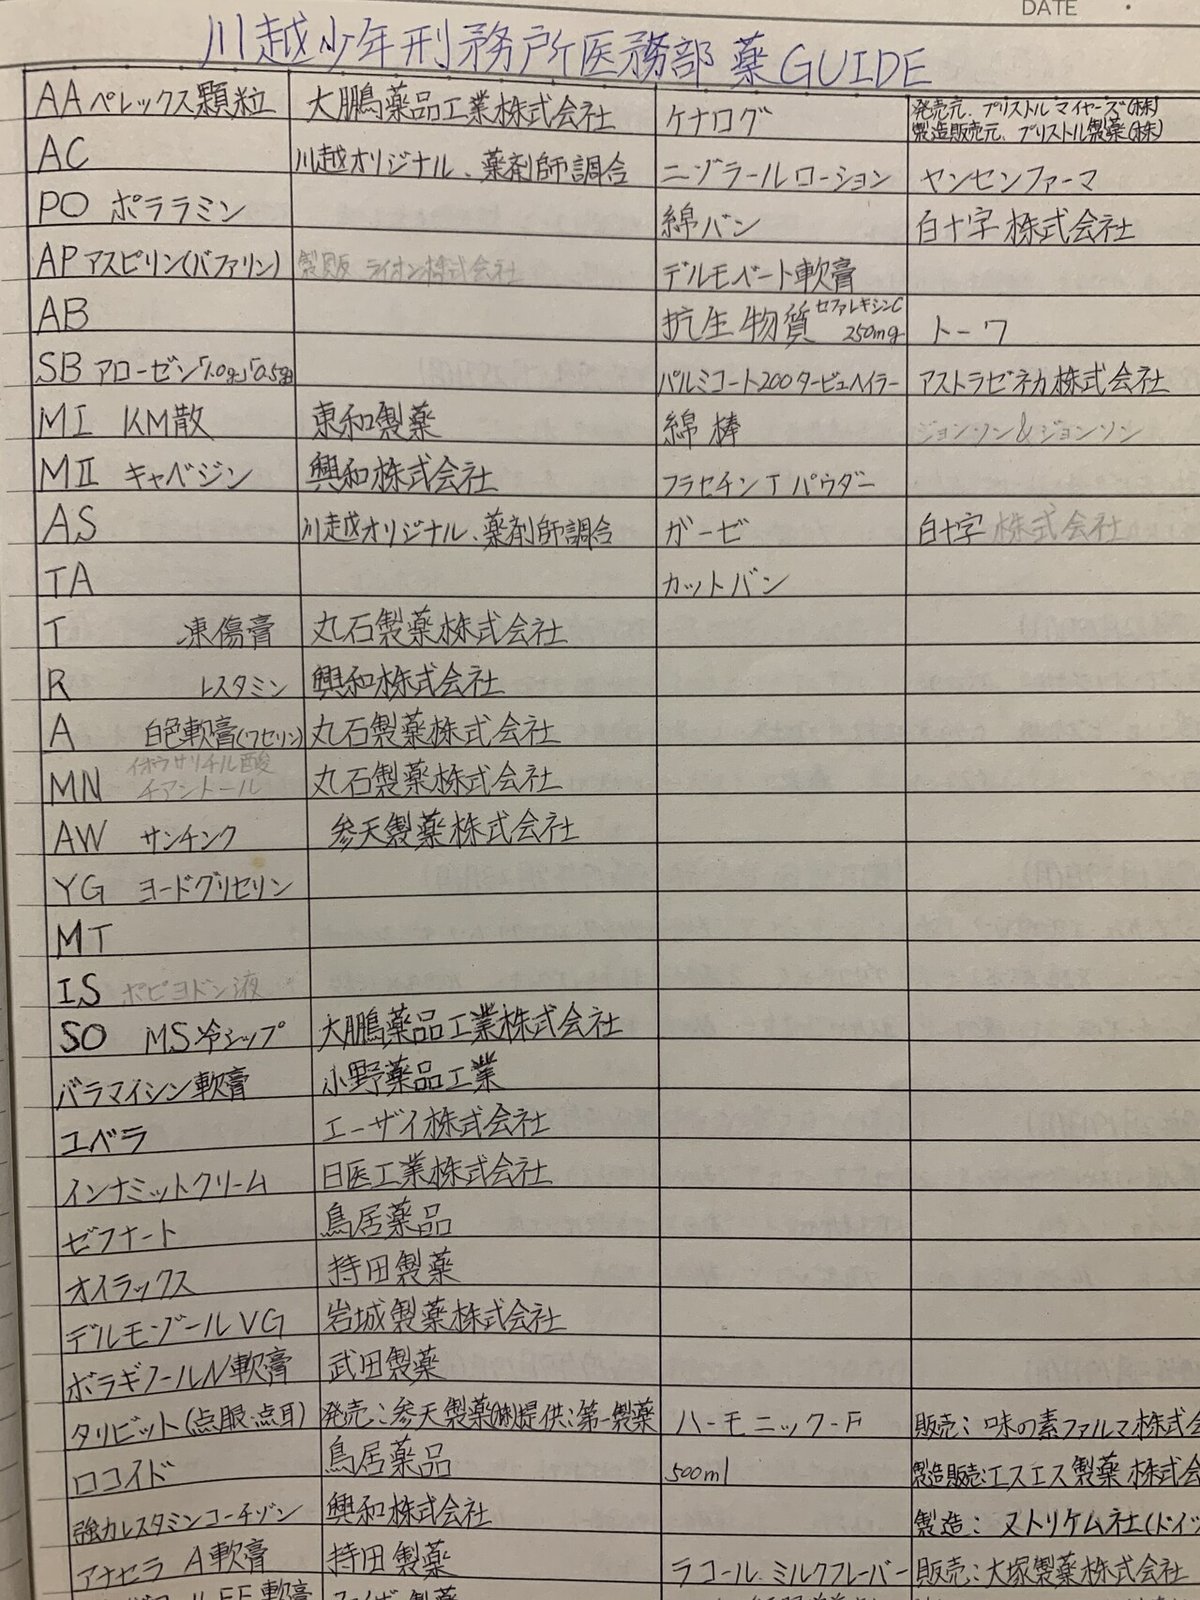 DATE
川越少年刑務所医務部 薬GUIDE
AA ペレックス顆粒 大鵬薬品工業株式会社 ケナログ 発売元、ブリストルマイヤーズ(株)
製造販売元、ブリストル製薬(株)
AC 川越オリジナル、薬剤師調合 ニゾラールローション ヤンセンファーマ
PO ポララミン 綿バン 白十字株式会社
AP アスピリン(バファリン) 製販 ライオン株式会社 デルモベート軟膏
AB 抗生物質 セファレキシンC 250mg トーワ
SB アローゼン「1.0g」「0.5g」 パルミコート200タービュヘイラー アストラゼネカ株式会社
MI KM散 東和製薬 綿棒 ジョンソン&ジョンソン
MII キャベジン 興和株式会社 フラセチンTパウダー
AS 川越オリジナル、薬剤師調合 ガーゼ 白十字株式会社
TA カットバン
T 凍傷膏 丸石製薬株式会社
R レスタミン 興和株式会社
A 白色軟膏(ワセリン) 丸石製薬株式会社
MN イオウサリチル酸チアントール 丸石製薬株式会社
AW サンチンク 参天製薬株式会社
YG ヨードグリセリン
MT
IS ポビヨドン液
SO MS冷シップ 大鵬薬品工業株式会社
バラマイシン軟膏 小野薬品工業
ユベラ エーザイ株式会社
インナミットクリーム 日医工業株式会社
ゼフナート 鳥居薬品
オイラックス 持田製薬
デルモゾールVG 岩城製薬株式会社
ボラギノールN軟膏 武田製薬
タリビット(点眼・点耳) 発売:参天製薬(株)提供:第一製薬 ハーモニック-F 販売:味の素ファルマ株式会
ロコイド 鳥居薬品 500ml 製造販売:エスエス製薬株式会
強力レスタミンコーチゾン 興和株式会社 製造:ヌトリケム社(ドイツ
アナセラA軟膏 持田製薬 ラコール.ミルクフレーバー 販売:大塚製薬株式会社